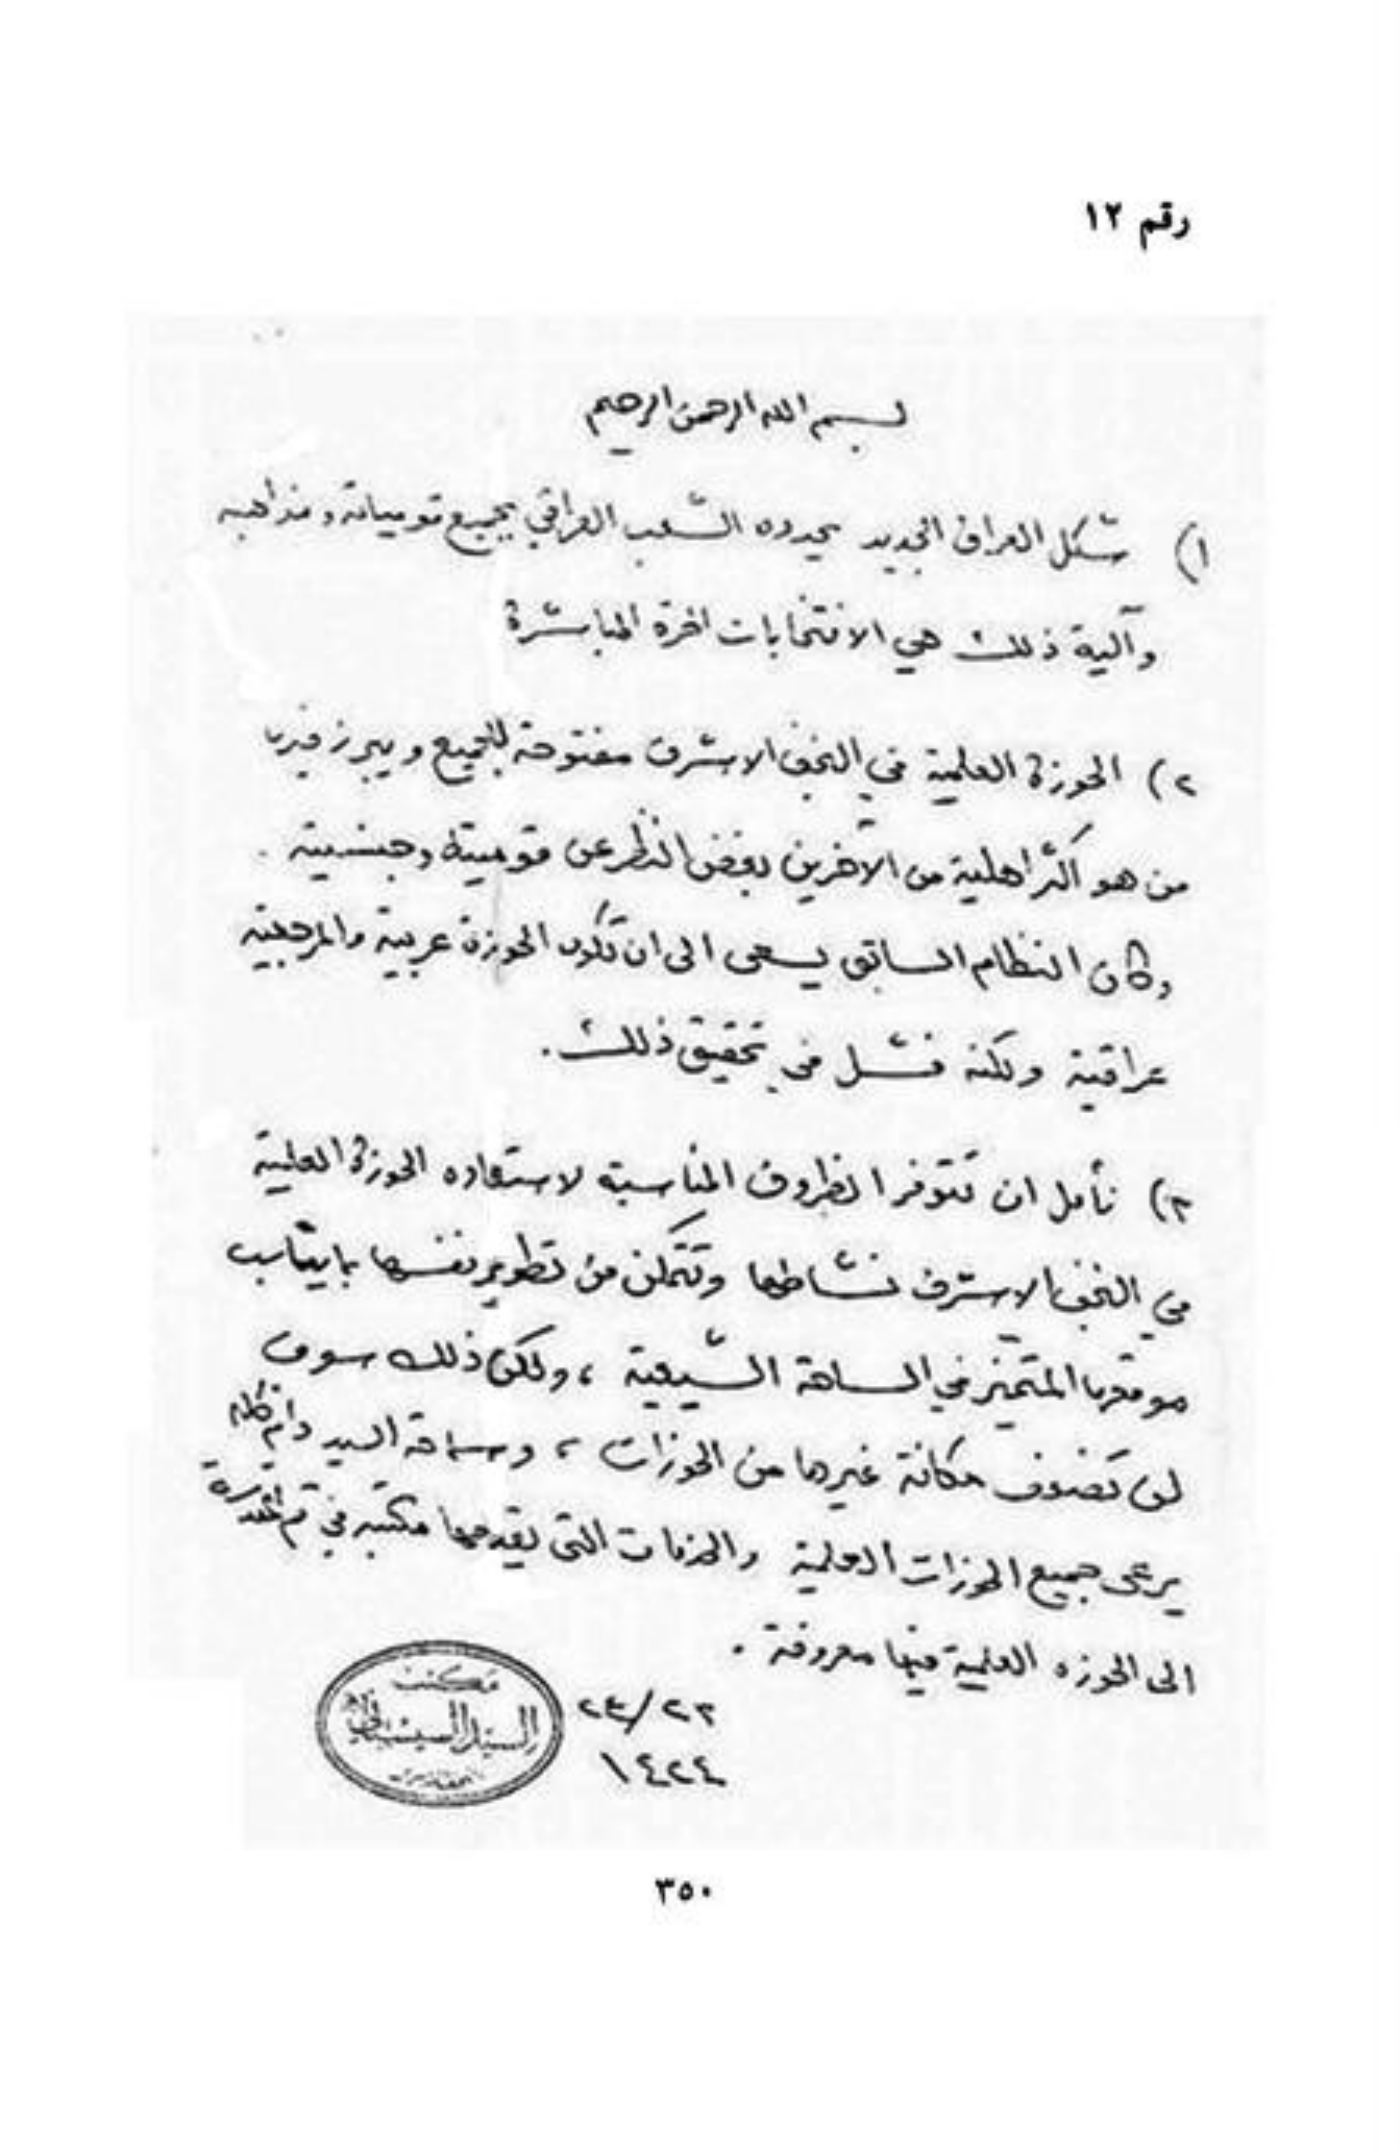 رقم ١٢
بسم الله الرحمن الرحيم
١) شكل العراق الجديد يحدده الشعب العراقي بجميع قومياته ومذاهبه
وآلية ذلك هي الانتخابات الحرة المباشرة
٢) الحوزة العلمية في النجف الاشرف مفتوحة للجميع ويبرز فيها
من هو أكثر اهلية من الآخرين بغض النظر عن قوميته وجنسيته .
وكان النظام السابق يسعى الى ان تكون الحوزة عربية والمرجعية
عراقية ولكنه فشل في تحقيق ذلك .
٣) نأمل ان تتوفر الظروف المناسبة لاستعاده الحوزة العلمية
في النجف الاشرف نشاطها وتتمكن من تطوير نفسها بما يناسب
موقعها المتميز في الساحة الشيعية ، ولكن ذلك سوف
لن تضعف مكانة غيرها من الحوزات ، وسماحة السيد دام ظله
يرعى جميع الحوزات العلمية والخدمات التي يقدمها مكتبه في قم المقدسة
الى الحوزه العلمية فيها معروفة .
مكتب
السيد السيستاني
٢٣/ع٢
١٤٢٤
٣٥٠